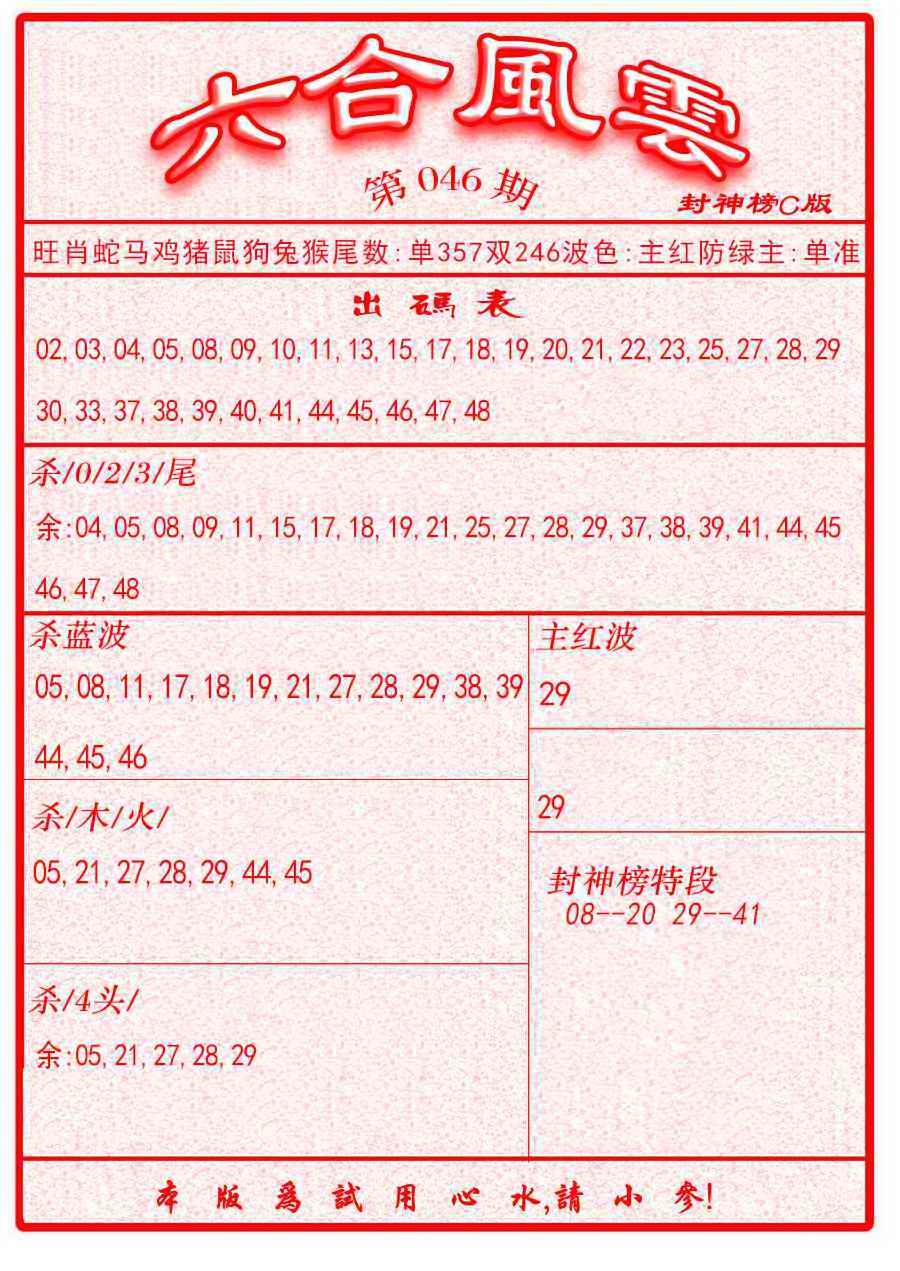 六合風雲
第046期
封神榜C版
旺肖蛇马鸡猪鼠狗兔猴尾数:单357双246波色:主红防绿主:单准
出碼表
02,03,04,05,08,09,10,11,13,15,17,18,19,20,21,22,23,25,27,28,29
30,33,37,38,39,40,41,44,45,46,47,48
杀/0/2/3/尾
余:04,05,08,09,11,15,17,18,19,21,25,27,28,29,37,38,39,41,44,45
46,47,48
杀蓝波
05,08,11,17,18,19,21,27,28,29,38,39
44,45,46
杀/木/火/
05,21,27,28,29,44,45
杀/4头/
余:05,21,27,28,29
主红波
29
29
封神榜特段
08--20 29--41
本版爲試用心水,請小參!